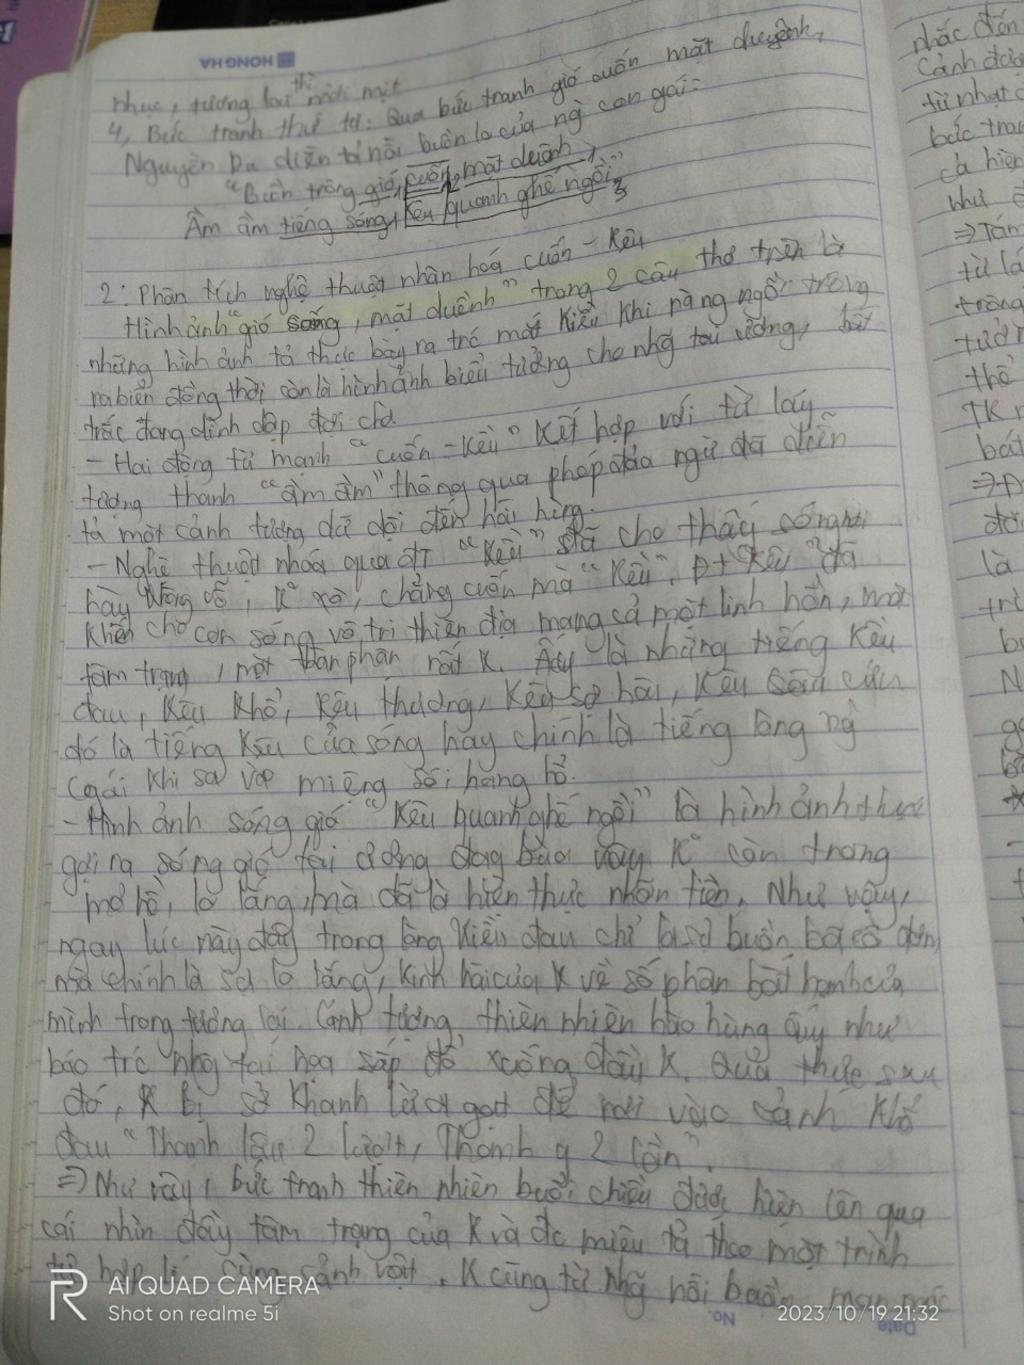 HONG HA
nhục, tương lai thì mờ mịt
4, Bức tranh thứ tư: Qua bức tranh gió cuốn mặt duyềnh,
Nguyễn Du diễn tả nỗi buồn lo của ng con gái:
"Buồn trông gió cuốn mặt duềnh,
Ầm ầm tiếng sóng kêu quanh ghế ngồi"
2: Phân tích nghệ thuật nhân hoá cuốn - kêu
Hình ảnh "gió sóng, mặt duềnh" trong 2 câu thơ trên là
những hình ảnh tả thực bày ra trc mắt Kiều khi nàng ngồi trông
ra biển đồng thời còn là hình ảnh biểu tưởng cho nhg tai ương, bất
trắc đang dình dập đợi chờ
- Hai động từ mạnh "cuốn - kêu" kết hợp với từ láy
tượng thanh "ầm ầm" thông qua phép đảo ngữ đã diễn
tả một cảnh tượng dữ dội đến hãi hùng.
- Nghệ thuật nhoá qua đt "kêu" đã cho thấy sóng
hày vỗ, K° xô, chẳng cuốn mà "kêu". Đt "kêu" đã
khiến cho con sóng vô tri thiên địa mang cả một linh hồn, một
tâm trạng, một thân phận rất K. Ấy là những tiếng kêu
đau, kêu khổ, kêu thương, kêu sợ hãi, kêu
đó là tiếng kêu của sóng hay chính là tiếng lòng ng
cgái khi sa vào miệng sói hang hổ.
- Hình ảnh sóng gió "kêu quanh ghế ngồi" là hình ảnh thực
gợi ra sóng gió tai ương đag bủa vây K° còn trong
mơ hồ, lo lắng, mà đã là hiện thực nhãn tiền. Như vậy,
ngay lúc này đây trong lòng Kiều đau chỉ là sự buồn bã cô đơn,
mà chính là sự lo lắng, kinh hãi của K về số phận bất hạnh của
mình trong tương lai. Cảnh tượng thiên nhiên hào hùng ấy như
báo trc nhg tai hoạ sắp đổ xuống đầu K. Quả thực sau
đó, K bị Sở Khanh lừa gạt để rơi vào cảnh khổ
đau "Thanh lâu 2 lượt, Thanh y 2 lần".
⇒ Như vậy, bức tranh thiên nhiên buổi chiều được hiện lên qua
cái nhìn đầy tâm trạng của K và đc miêu tả theo một trình
tự hợp lí. Cùng cảnh vật, K cũng từ nhg nỗi buồn man mác
No.
Date
nhắc đến
từ nhạt
bức tra
cả hiện
như
⇒ Tám
từ lá
trông
tưởn
thể
TK
bất
đời
là
AI QUAD CAMERA
Shot on realme 5i
2023/10/19 21:32